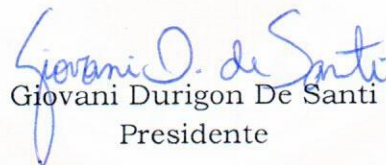 Giovani D. de Santi
Giovani Durigon De Santi
Presidente